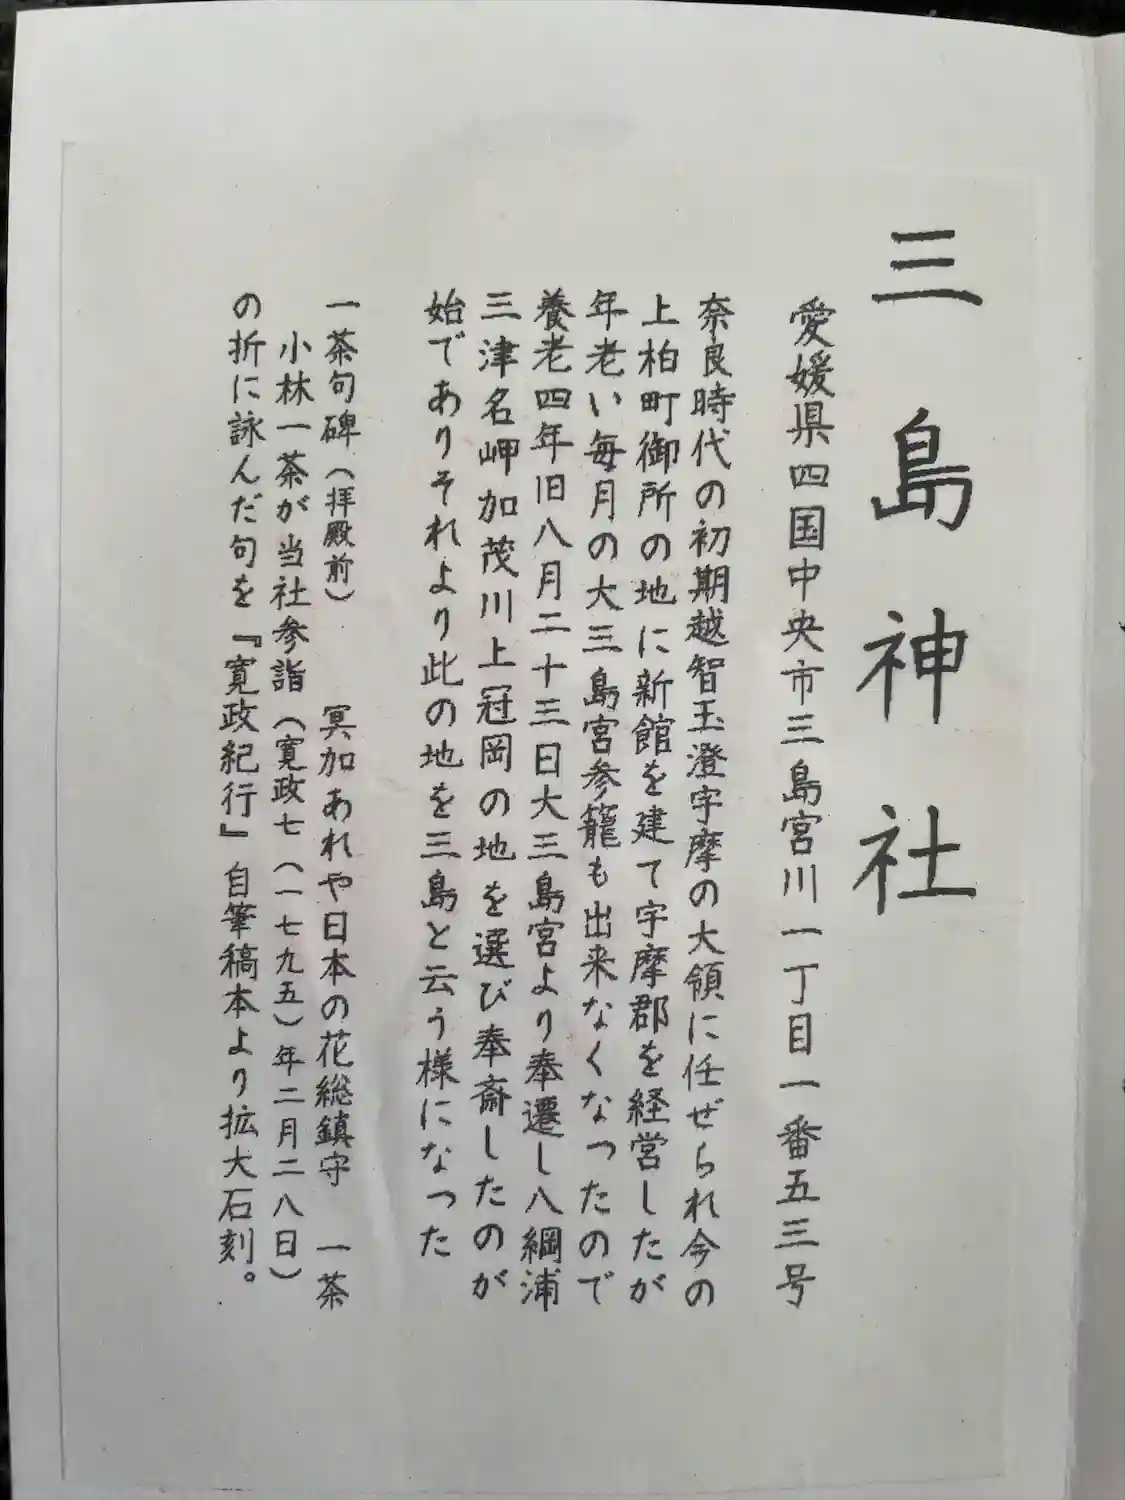 三島神社
愛媛県四国中央市三島宮川一丁目一番五三号
奈良時代の初期越智玉澄宇摩の大領に任ぜられ今の
上柏町御所の地に新館を建て宇摩郡を経営したが
年老い毎月の大三島宮参籠も出来なくなったので
養老四年旧八月二十三日大三島宮より奉遷し八綱浦
三津名岬加茂川上冠岡の地を選び奉斎したのが
始でありそれより此の地を三島と云う様になった
一茶句碑（拝殿前）　冥加あれや日本の花総鎮守　一茶
小林一茶が当社参詣（寛政七（一七九五）年二月二八日）
の折に詠んだ句を『寛政紀行』自筆稿本より拡大石刻。